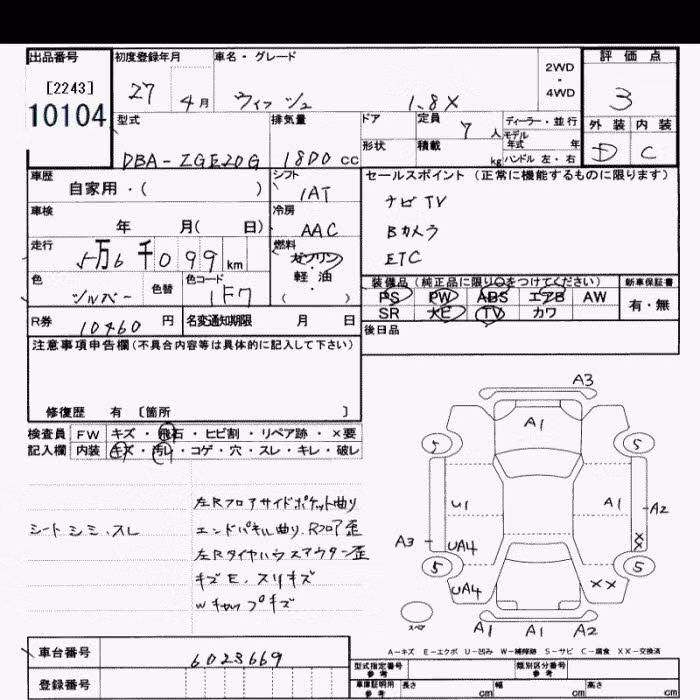 出品番号
[2243]
10104
初度登録年月
27 4月
車名・グレード
ウィッシュ 1.8X
2WD
・
4WD
評価点
3
外装 内装
D C
型式
DBA-ZGE20G
排気量
1800 cc
ドア
定員
7 人
ディーラー・並行
モデル年式 年
形状
積載
kg
ハンドル 左・右
車歴
自家用・( )
シフト
1AT
車検
年 月( 日)
冷房
AAC
走行
5万6千099 km
燃料
ガソリン
・
軽油
( )
色
シルバー
色替
色コード
1F7
R券
10460 円
名変通知期限 月 日
セールスポイント (正常に機能するものに限ります)
ナビTV
Bカメラ
ETC
装備品(純正品に限り○をつけてください)
PS PW ABS エアB AW
SR 大E TV カワ
新車保証書
有・無
後日品
注意事項申告欄(不具合内容等は具体的に記入して下さい)
修復歴 有 〔箇所 〕
検査員 FW キズ・飛石・ヒビ割・リペア跡・×要
記入欄 内装 キズ・汚レ・コゲ・穴・スレ・キレ・破レ
シートシミ、スレ
左Rフロアサイドポケット曲り
エンドパネル曲り、Rフロア歪
左Rタイヤハウスアウター歪
キズE、スリキズ
Wキャップキズ
A3
A1
5 5
U1 A1 A2
A3 UA4 ××
5 5
UA4 ××
スペア
A1 A1 A2
A-キズ E-エクボ U-凹み W-補修跡 S-サビ C-腐食 XX-交換済
車台番号
6023669
登録番号
型式指定番号
参考
類別区分番号
参考
車庫証明用
参考
長さ cm
幅 cm
高さ cm